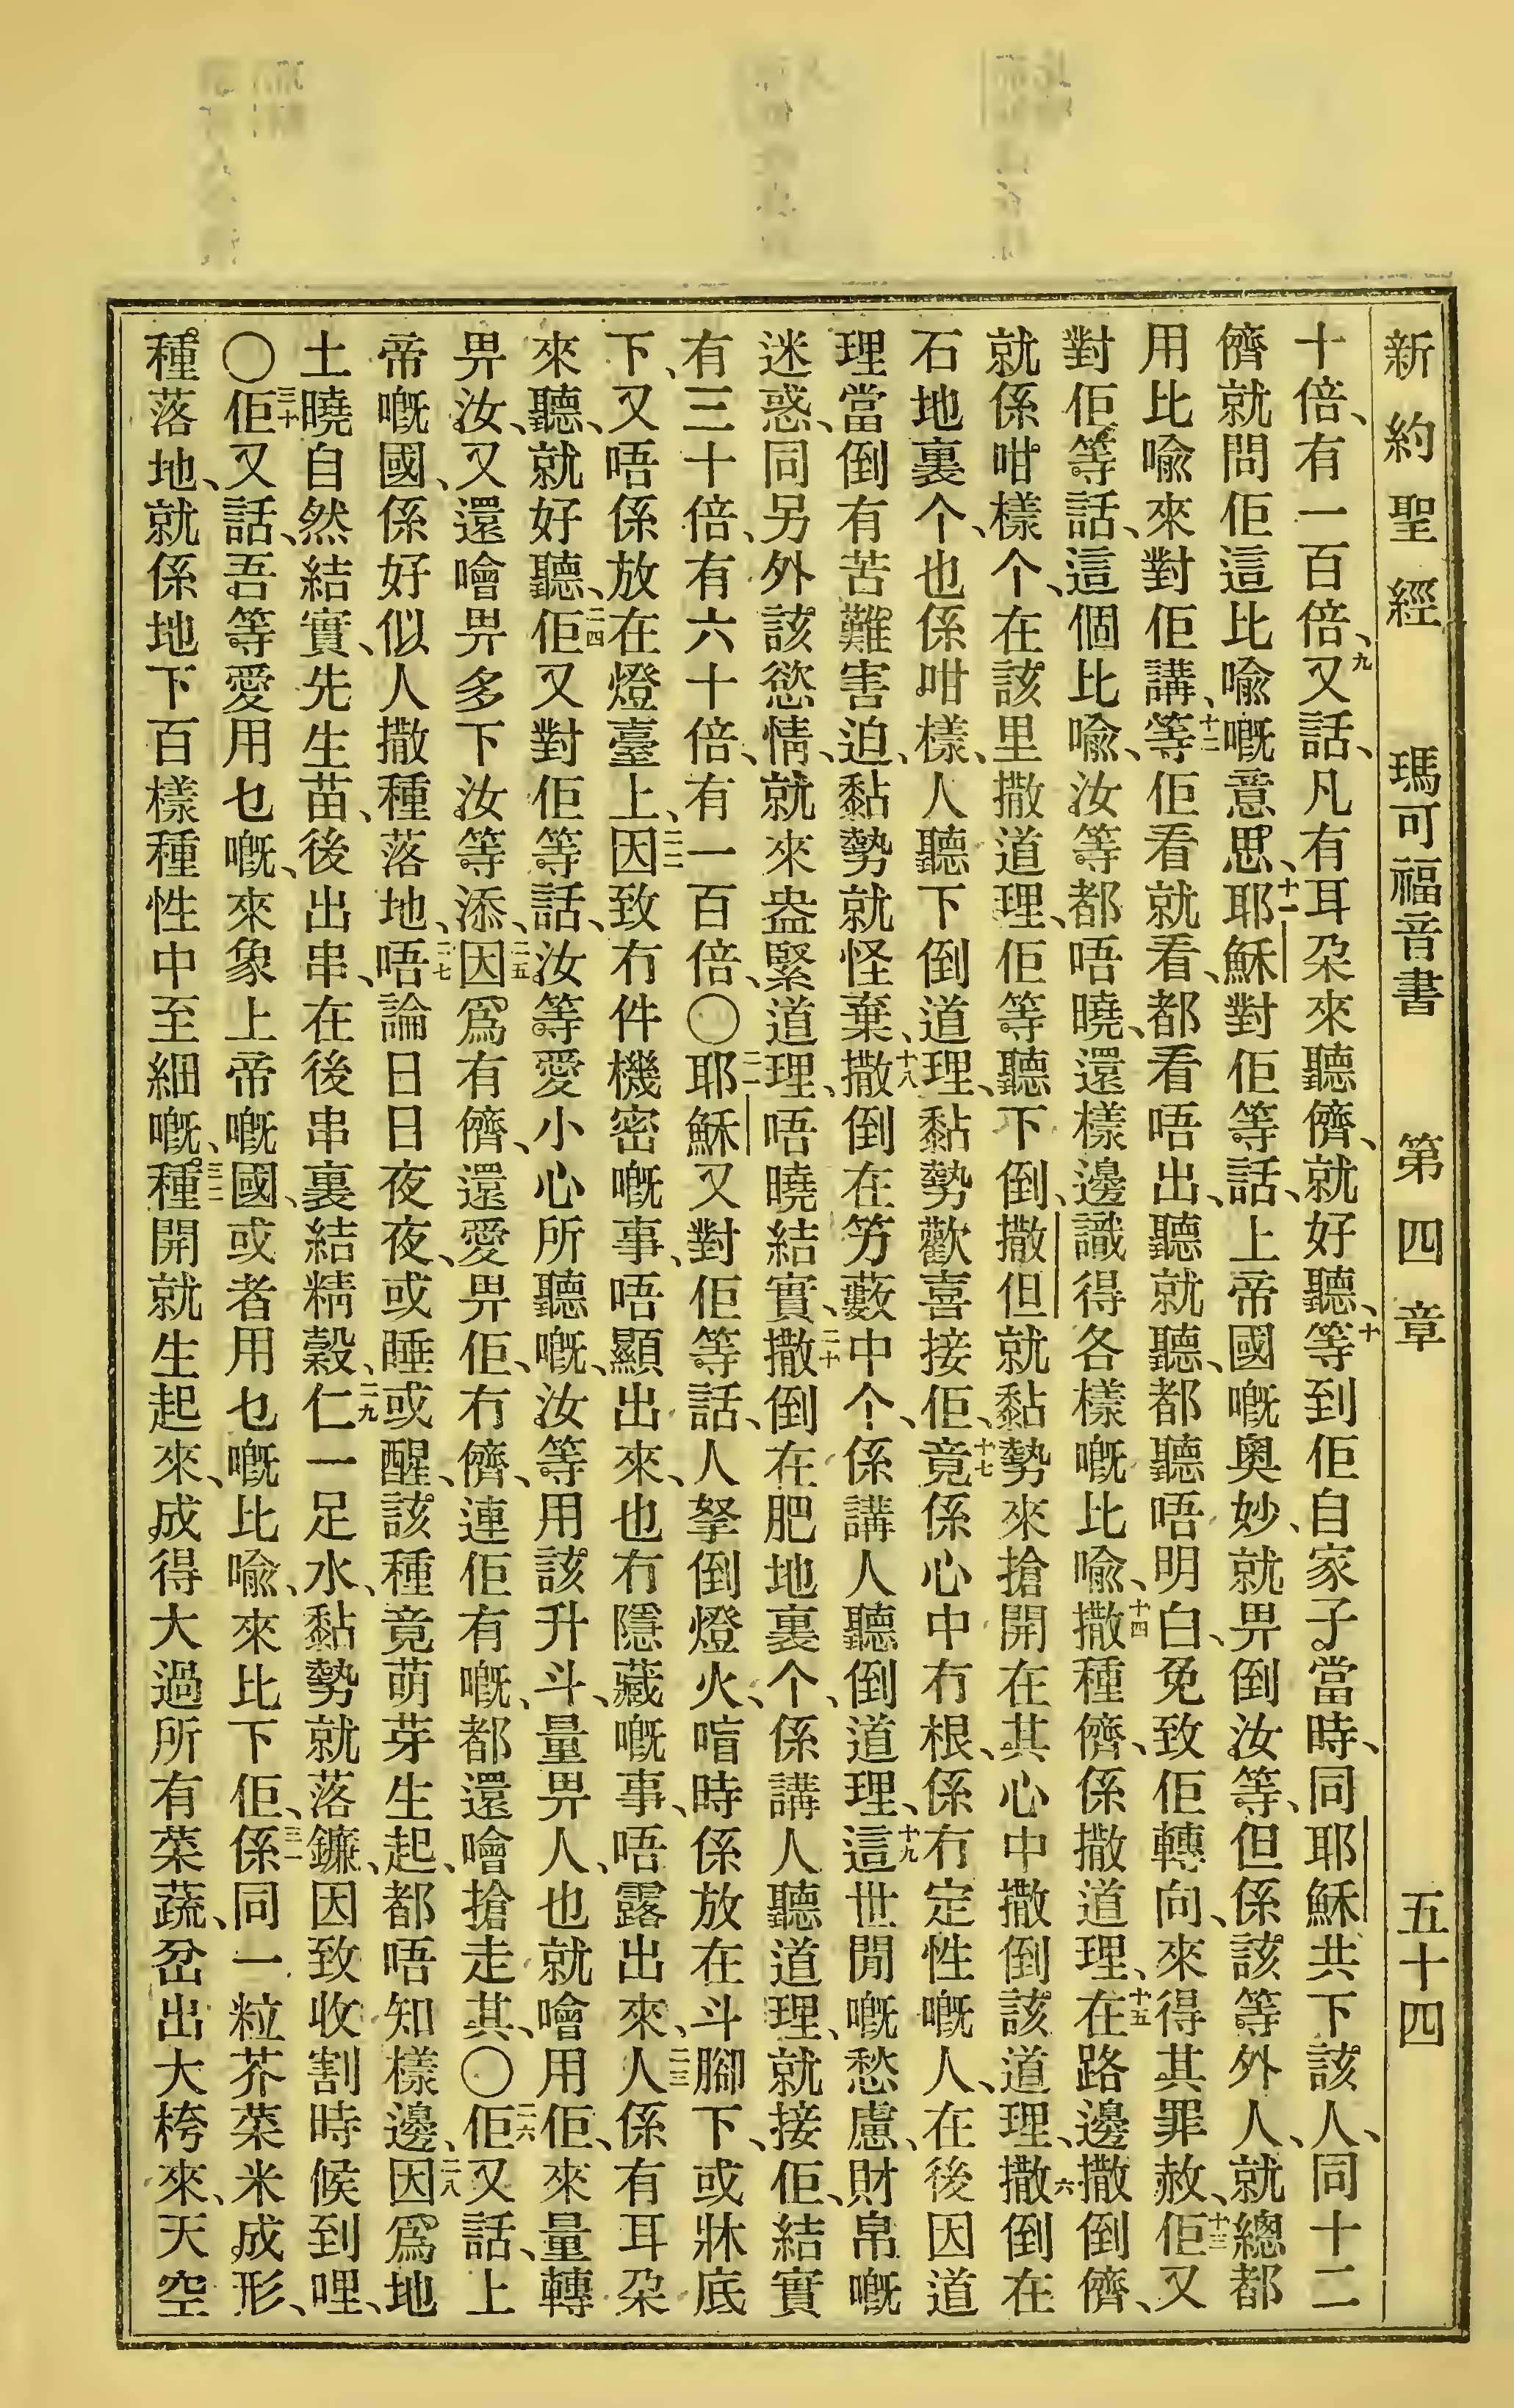 新約聖經 瑪可福音書 第四章 五十四
十倍、有一百倍、九又話、凡有耳朶來聽儕、就好聽、十等到佢自家子當時、同耶穌共下該人、同十二
儕就問佢這比喩嘅意思、十一耶穌對佢等話、上帝國嘅奧妙、就畀倒汝等、但係該等外人、就總都
用比喩來對佢講、十二等佢看就看、都看唔出、聽就聽、都聽唔明白、免致佢轉向、來得其罪赦、十三佢又
對佢等話、這個比喩、汝等都唔曉、還樣邊識得各樣嘅比喩、十四撒種儕、係撒道理、十五在路邊撒倒儕、
就係咁樣个、在該里撒道理、佢等聽下倒、撒但就黏勢來搶開在其心中撒倒該道理、六撒倒在
石地裏个、也係咁樣、人聽下倒道理、黏勢歡喜接佢、十七竟係心中冇根、係冇定性嘅人、在後因道
理當倒有苦難害迫、黏勢就怪棄、十八撒倒在竻藪中个、係講人聽倒道理、十九這世閒嘅愁慮、財帛嘅
迷惑、同另外該慾情、就來盎緊道理、唔曉結實、二十撒倒在肥地裏个、係講人聽道理、就接佢、結實
有三十倍、有六十倍、有一百倍、〇二一耶穌又對佢等話、人拏倒燈火、唁時係放在斗腳下、或牀底
下、又唔係放在燈臺上、二二因致冇件機密嘅事、唔顯出來、也冇隱藏嘅事、唔露出來、二三人係有耳朶
來聽、就好聽、二四佢又對佢等話、汝等愛小心所聽嘅、汝等用該升斗、量畀人、也就噲用佢、來量轉
畀汝、又還噲畀多下汝等添、二五因爲有儕、還愛畀佢、冇儕、連佢有嘅、都還噲搶走其、〇二六佢又話、上
帝嘅國、係好似人撒種落地、二七唔論日日夜夜、或睡或醒、該種竟萌芽生起、都唔知樣邊、二八因爲地
土曉自然結實、先生苗、後出串、在後串裏結精穀仁、二九一足水、黏勢就落鐮、因致收割時候到哩、
〇三十佢又話、吾等愛用乜嘅、來象上帝嘅國、或者用乜嘅比喩、來比下佢、三一係同一粒芥菜米成形、
種落地、就係地下百樣種性中至細嘅、三二種開就生起來、成得大過所有菜蔬、岔出大桍來、天空